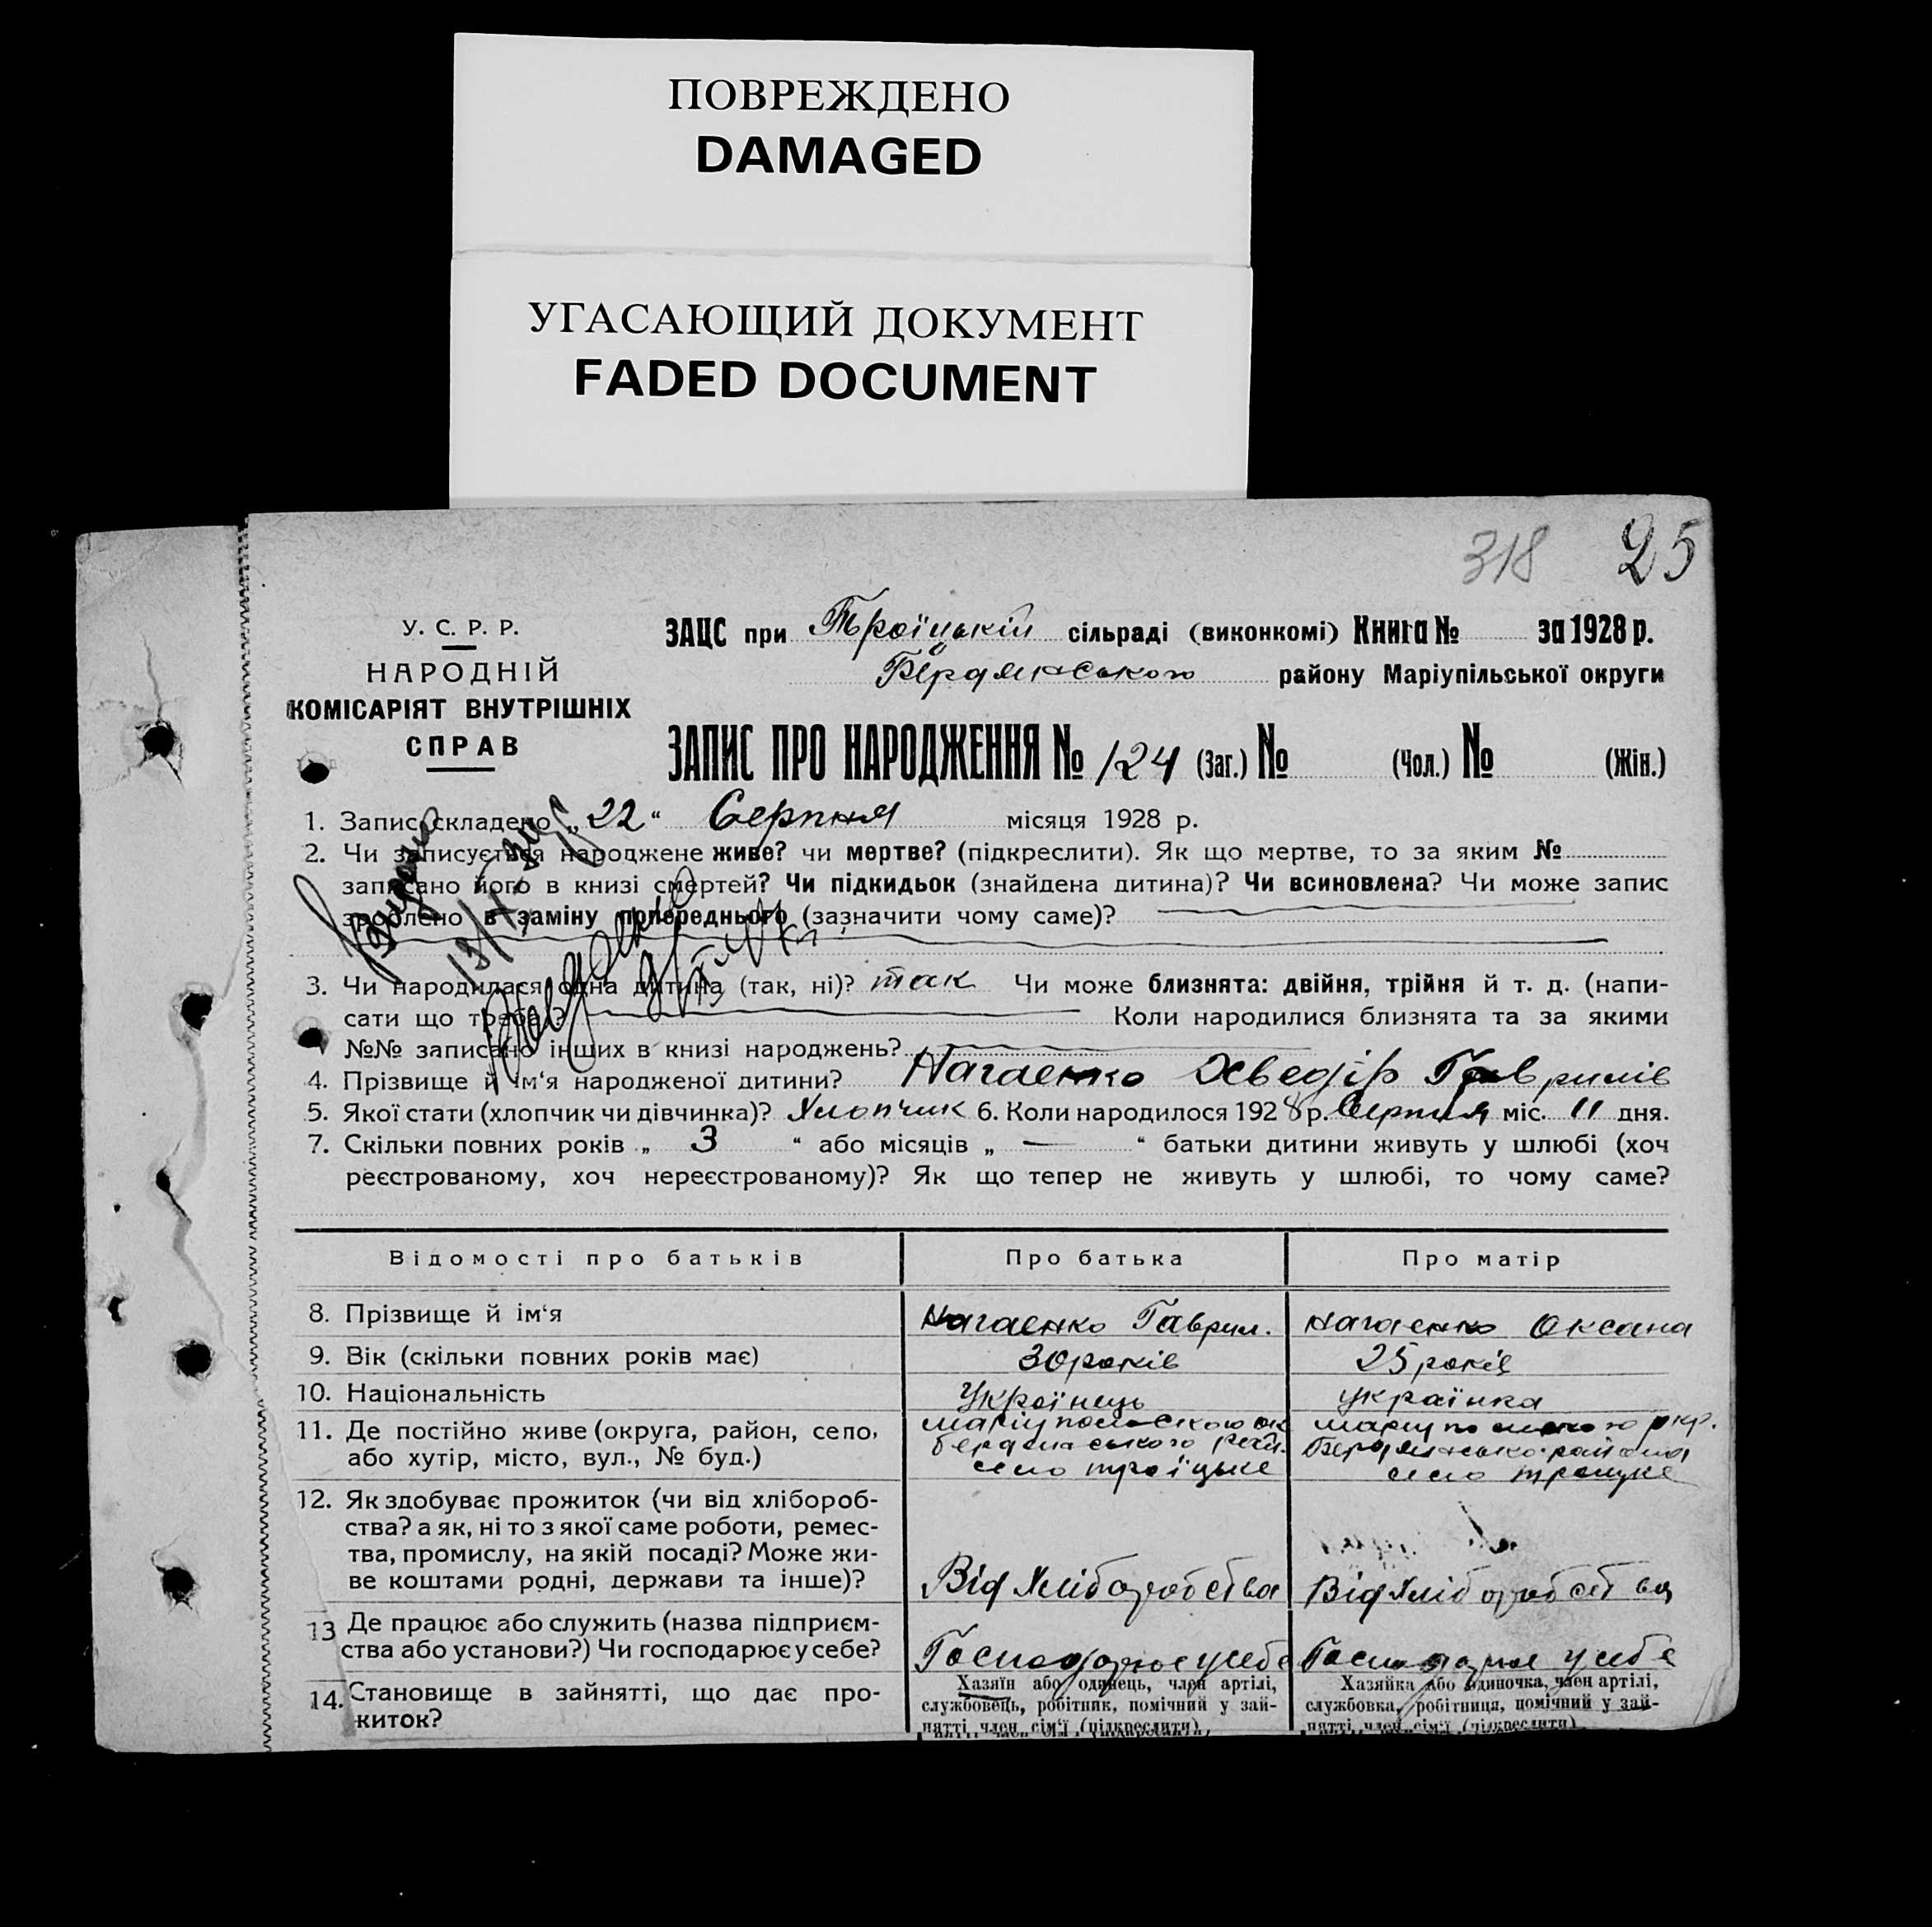 ПОВРЕЖДЕНО
DAMAGED
УГАСАЮЩИЙ ДОКУМЕНТ
FADED DOCUMENT
318 25
У. С. Р. Р.
НАРОДНІЙ
КОМІСАРІЯТ ВНУТРІШНІХ
СПРАВ
ЗАЦС при Троїцькій сільраді (виконкомі) Книга № за 1928 р.
Бердянського району Маріупільської округи
ЗАПИС ПРО НАРОДЖЕННЯ № 124 (Заг.) № (Чол.) № (Жін.)
1. Запис складено „22“ Серпня місяця 1928 р.
2. Чи записується народжене живе? чи мертве? (підкреслити). Як що мертве, то за яким №
записано його в книзі смертей? Чи підкидьок (знайдена дитина)? Чи всиновлена? Чи може запис
зроблено в заміну попереднього (зазначити чому саме)?
3. Чи народилася одна дитина (так, ні)? так Чи може близнята: двійня, трійня й т. д. (напи-
сати що треба)? Коли народилися близнята та за якими
№№ записано інших в книзі народжень?
4. Прізвище й ім‘я народженої дитини? Нагаенко Хведір Гаврилів
5. Якої стати (хлопчик чи дівчинка)? Хлопчик 6. Коли народилося 1928 р. Серпня міс. 11 дня.
7. Скільки повних років „ 3 “ або місяців „ — “ батьки дитини живуть у шлюбі (хоч
реєстрованому, хоч нереєстрованому)? Як що тепер не живуть у шлюбі, то чому саме?
Відомості про батьків Про батька Про матір
8. Прізвище й ім‘я Нагаенко Гаврил. Нагаенко Оксана
9. Вік (скільки повних років має) 30 років 25 років
10. Національність Українець українка
11. Де постійно живе (округа, район, село, або хутір, місто, вул., № буд.)
маріупольского ок
бердянського рай.
село троїцьке
окр.
Бердянсько района
село троицке
12. Як здобуває прожиток (чи від хлібороб-
ства? а як, ні то з якої саме роботи, ремес-
тва, промислу, на якій посаді? Може жи-
ве коштами родні, держави та інше)? Від Хліборобства Від Хліборобства
13 Де працює або служить (назва підприєм-
ства або установи?) Чи господарює у себе? Господарює у себе Господарює у себе
14. Становище в зайнятті, що дає про-
житок?
Хазяїн або одинець, член артілі,
службовець, робітник, помічний у зай-
нятті, член сім‘ї (підкреслити).
Хазяйка або одиночка, член артілі,
службовка, робітниця, помічний у зай-
нятті, член сім‘ї (підкреслити).